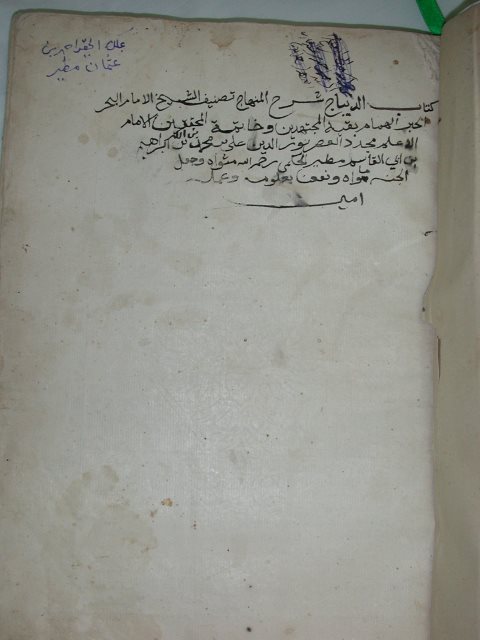 ملك الحقير احمد بن
عثمان مطير
كتاب الديباج شرح المنهاج تصنيف الشيخ الامام البحر
الحبر الهمام بقية المجتهدين وخاتمة المحققين الامام
العلامة مجدد العصر نور الدين علي بن محمد بن ابراهيم
بن ابي القاسم مطير الحكمي رحم الله مثواه وجعل
الجنة ماواه ونفع بعلومه
امين